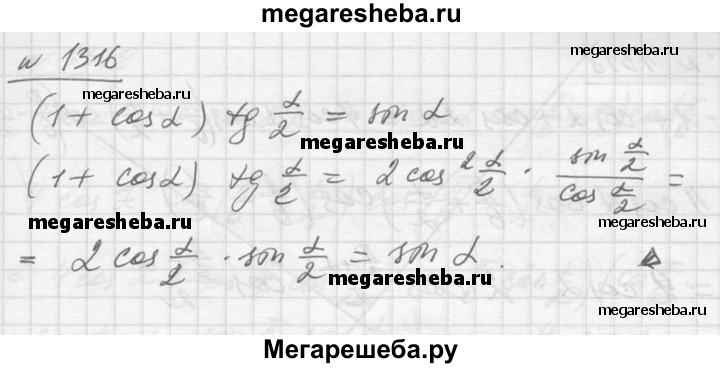 megaresheba.ru
№ 1316
megaresheba.ru
megaresheba.ru
(1 + cos α) tg α/2 = sin α
megaresheba.ru
(1 + cos α) tg α/2 = 2 cos² α/2 · sin α/2 / cos α/2 =
megaresheba.ru
megaresheba.ru
= 2 cos α/2 · sin α/2 = sin α.
megaresheba.ru
megaresheba.ru
Мегарешеба.ру